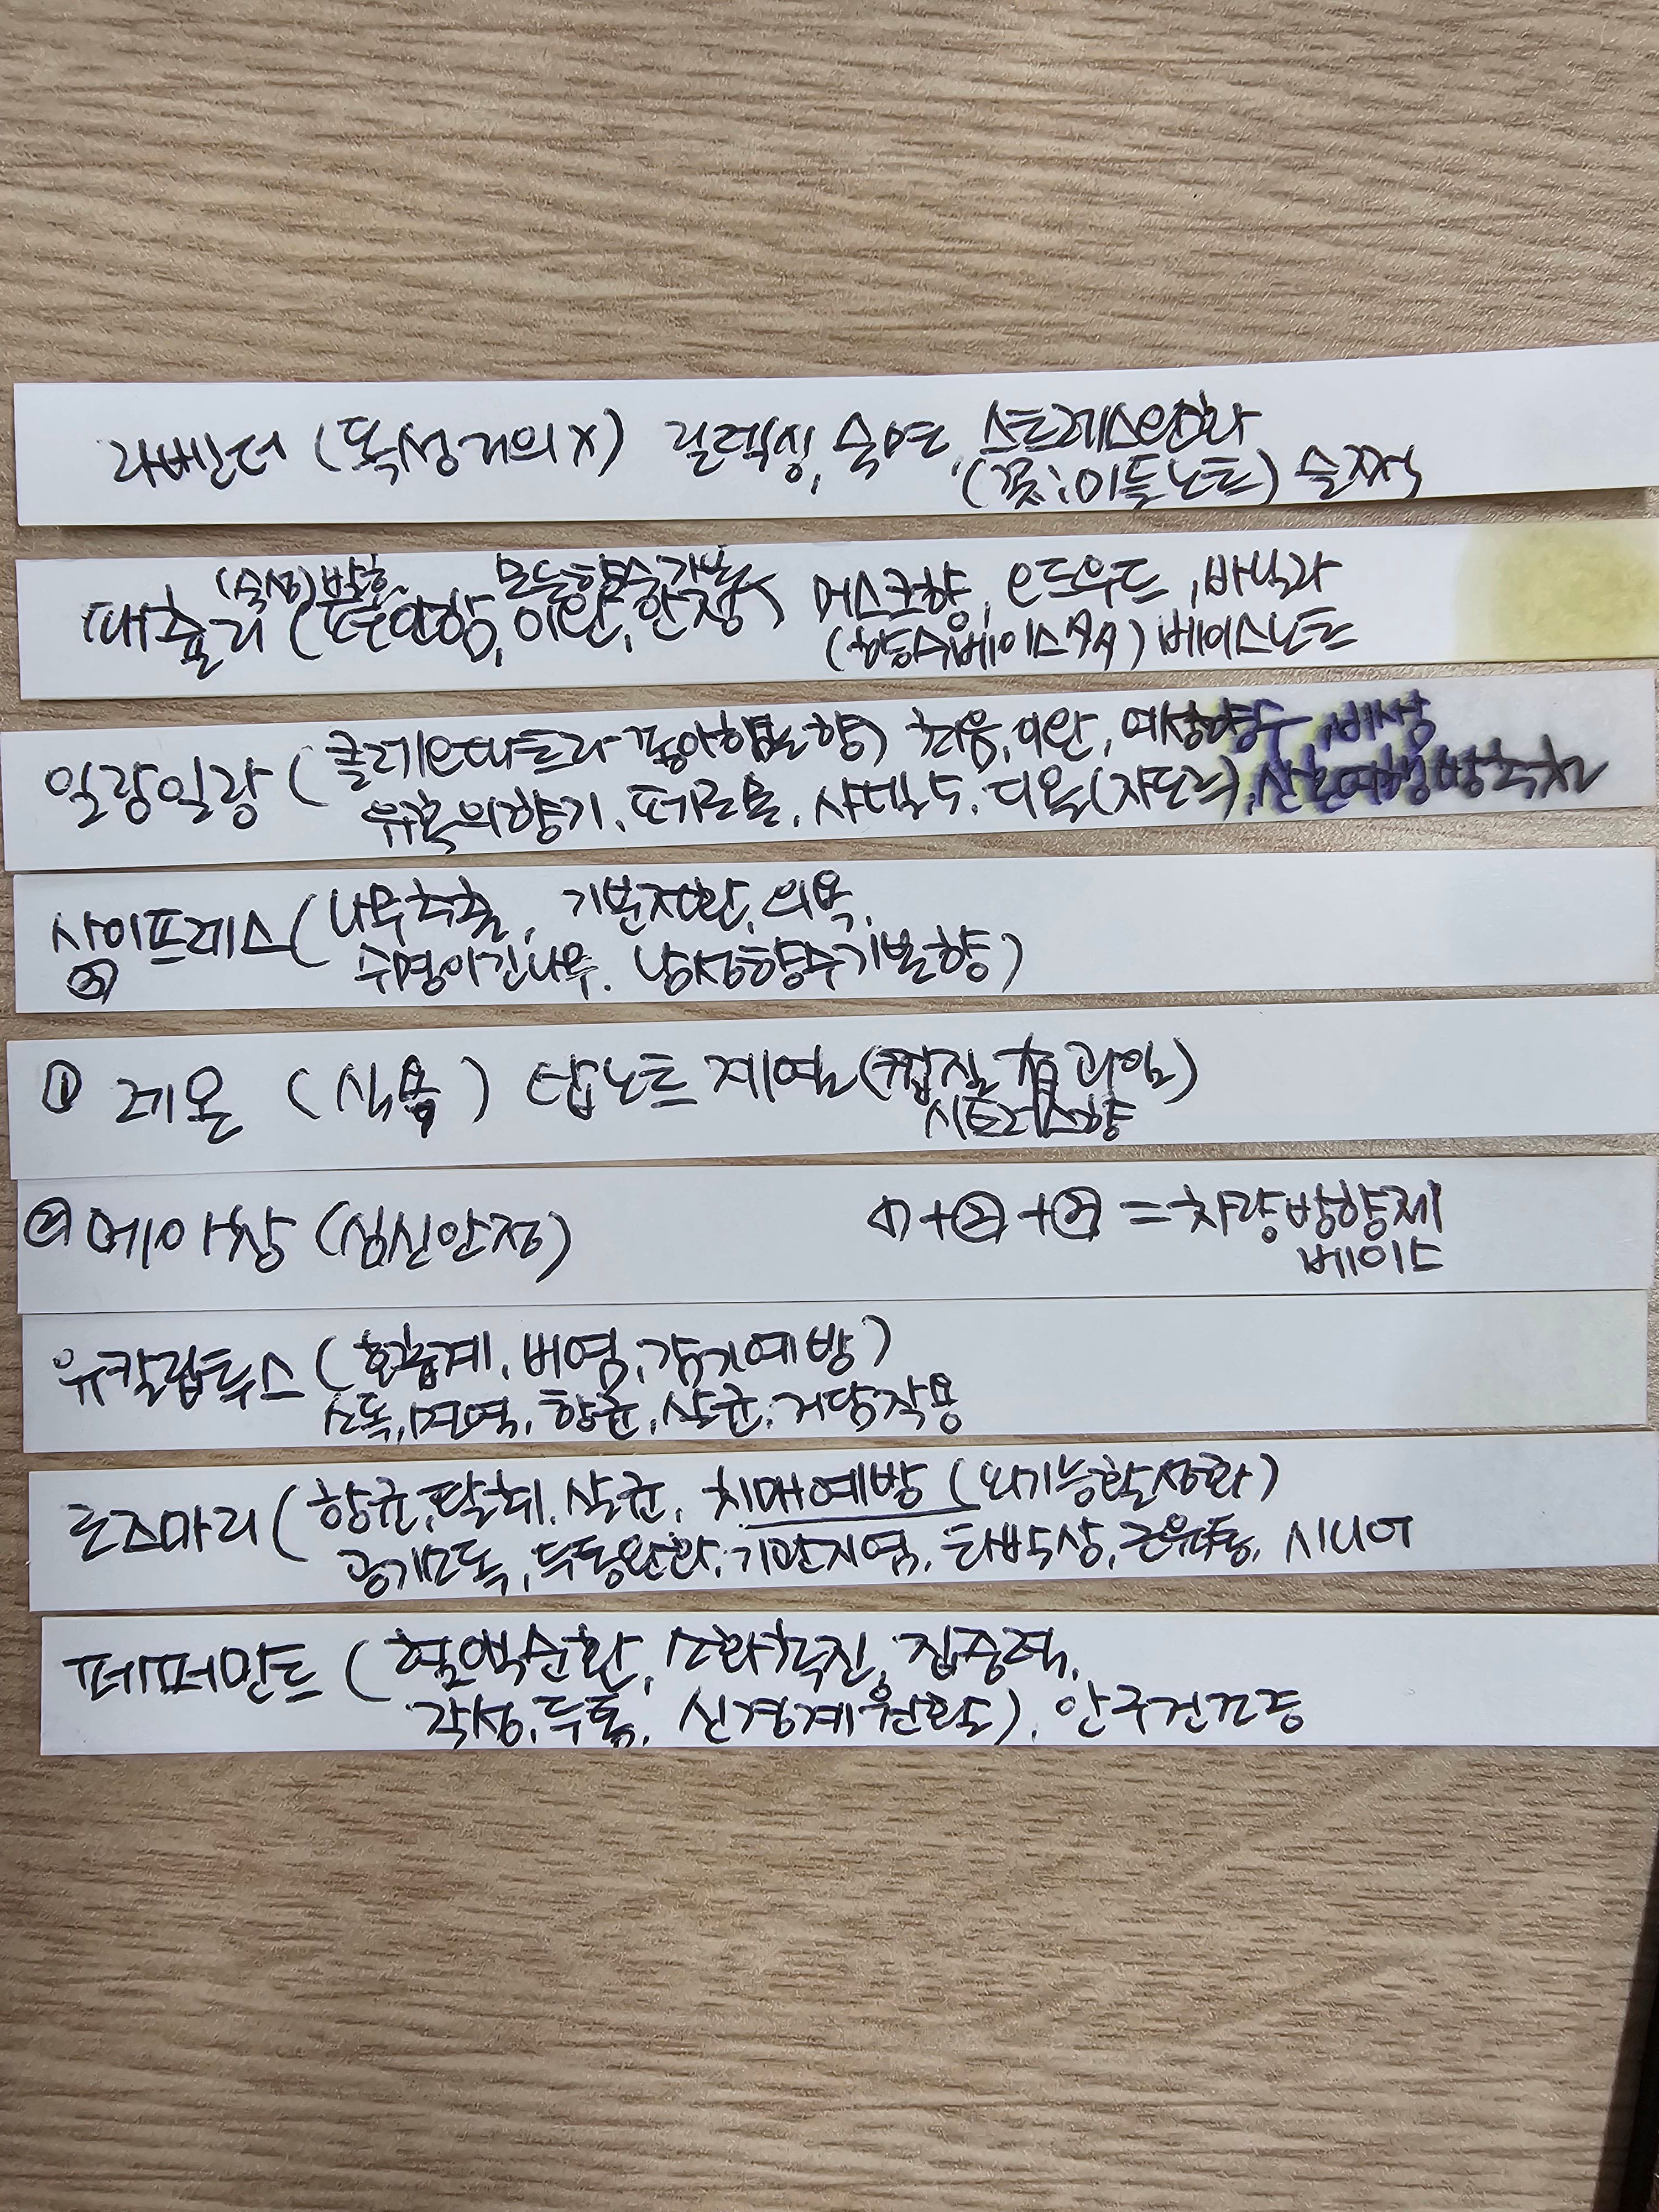 라벤더 (독성거의X) 릴렉싱, 숙면, 스트레스완화
(꽃:미들노트) 술짝
(숙성)발효 모든향수기본
패출리 (흙의향, 이완, 안정) 머스크향, 우드, 바닐라
(향수베이스) 베이스노트
일랑일랑 (클레오파트라 좋아했던 향) 치유, 이완, 여성향수, 비싸
유혹의향기, 페로몬, 샤넬No5, 디올(쟈도르), 신혼여행방추천
사이프레스 (나무추출, 기분전환, 의욕,
③ 수명이긴나무. 남성향수기본향)
① 레몬 (식용) 탑노트계열 (껍질 과일)
시트러스향
② 메이창 (심신안정) ①+②+③=차량방향제
베이스
유칼립투스 (호흡계, 비염, 감기예방)
소독, 면역, 항균, 살균, 거담작용
로즈마리 (항균, 탈취, 살균, 치매예방 (뇌기능활성화)
공기소독, 두통완화, 기관지염, 타박상, 근육통, 시니어
페퍼민트 (혈액순환, 소화촉진, 집중력,
각성, 두통, 신경계원활), 안구건조증